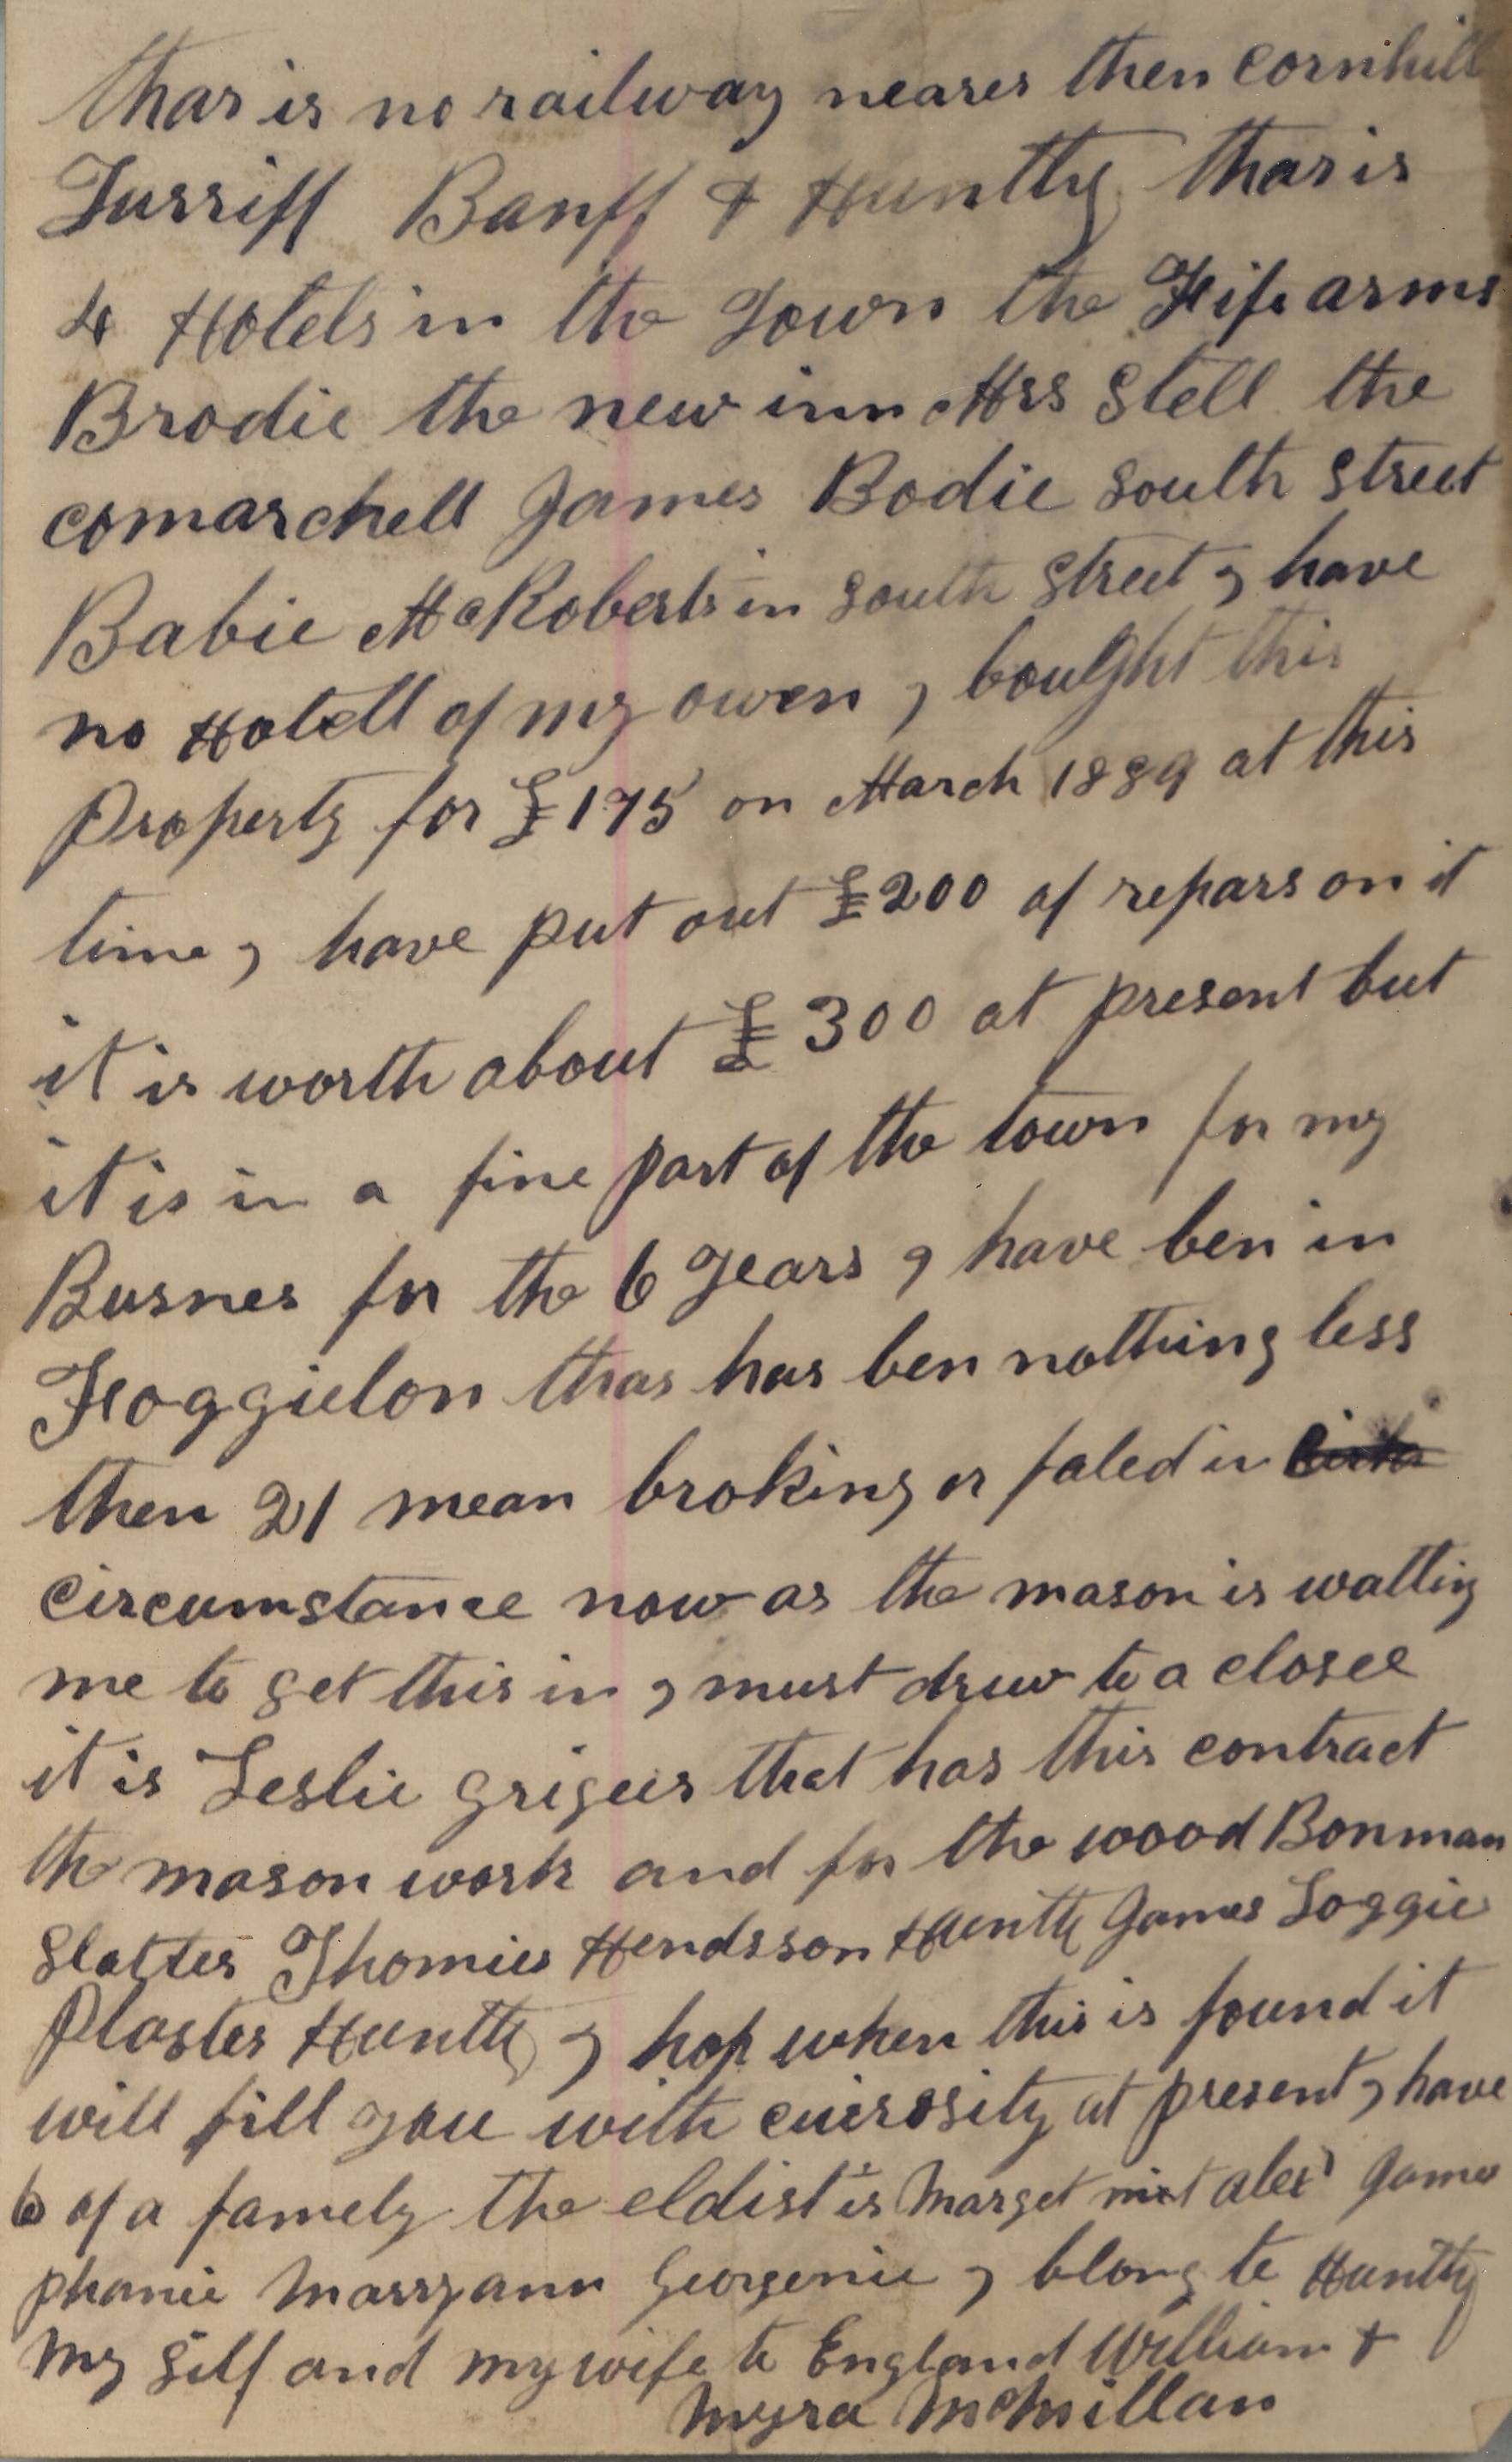 thar is no railway nearer then cornhill
Turriff Banff & Huntly thar is
4 Hotels in the Town the Fife arms
Brodie the new inn Mrs Stell the
comarchell James Bodie South Street
Babie McRoberts in South Street I have
no Hotell of my owen I boulght this
Property for £175 on March 1889 at this
time I have put out £200 of repars on it
it is worth about £300 at present but
it is in a fine part of the town for my
Busnes for the 6 years I have ben in
Foggielon thar has ben nothing less
then 21 mean broking or faled in
circumstance now as the mason is watting
me to get this in I must druw to a closee
it is Leslie grigeer that has this contract
the mason work and for the wood Bonman
Slatter Thomies Hendsson Huntly James Loggie
Plaster Huntly I hop when this is found it
will fill you with cuirosity at present I have
6 of a famely the eldist is Marget nixt alexr James
phanie Marryann Georgenie I blong to Huntly
my Silf and my wife to England William &
Myra McMillan